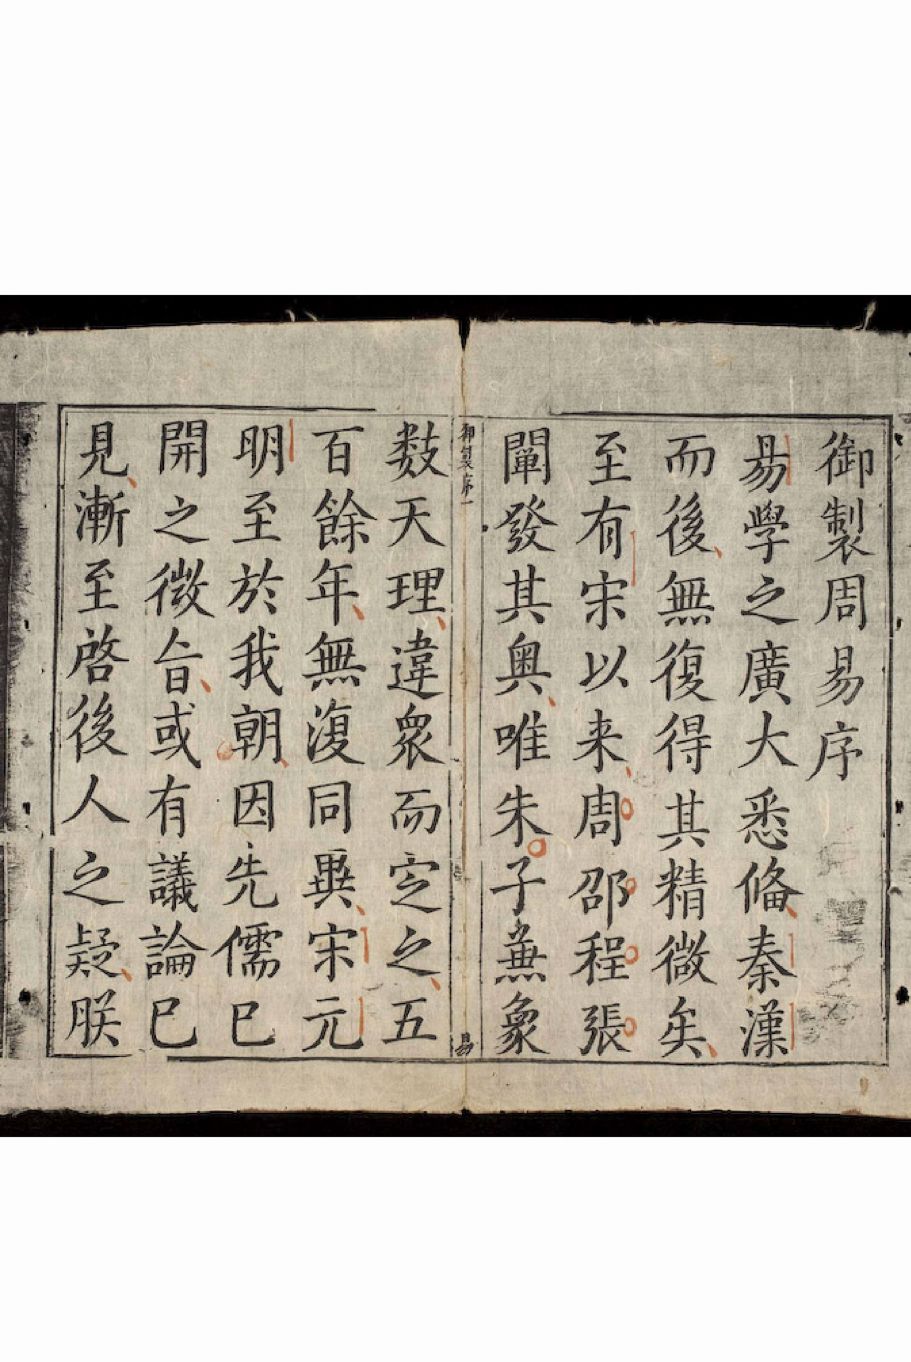 御製周易序
易學之廣大悉俻秦漢
而後無復得其精微矣
至有宋以来周邵程張
闡發其奥唯朱子兼象
御製序一
易
數天理違衆而定之五
百餘年無復同異宋元
明至於我朝因先儒已
開之微旨或有議論已
見漸至啓後人之疑朕